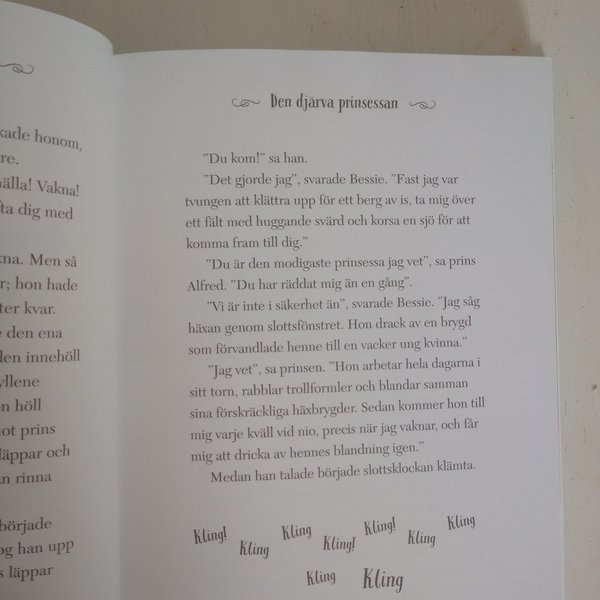 kade honom,
re.
hälla! Vakna!
ta dig med
kna. Men så
r; hon hade
ter kvar.
e den ena
den innehöll
yllene
on höll
not prins
läppar och
an rinna
började
og han upp
s läppar
Den djärva prinsessan
”Du kom!” sa han.
”Det gjorde jag”, svarade Bessie. ”Fast jag var
tvungen att klättra upp för ett berg av is, ta mig över
ett fält med huggande svärd och korsa en sjö för att
komma fram till dig.”
”Du är den modigaste prinsessa jag vet”, sa prins
Alfred. ”Du har räddat mig än en gång”.
”Vi är inte i säkerhet än”, svarade Bessie. ”Jag såg
häxan genom slottsfönstret. Hon drack av en brygd
som förvandlade henne till en vacker ung kvinna.”
”Jag vet”, sa prinsen. ”Hon arbetar hela dagarna i
sitt torn, rabblar trollformler och blandar samman
sina förskräckliga häxbrygder. Sedan kommer hon till
mig varje kväll vid nio, precis när jag vaknar, och får
mig att dricka av hennes blandning igen.”
Medan han talade började slottsklockan klämta.
Kling! Kling Kling Kling! Kling! Kling Kling
Kling Kling